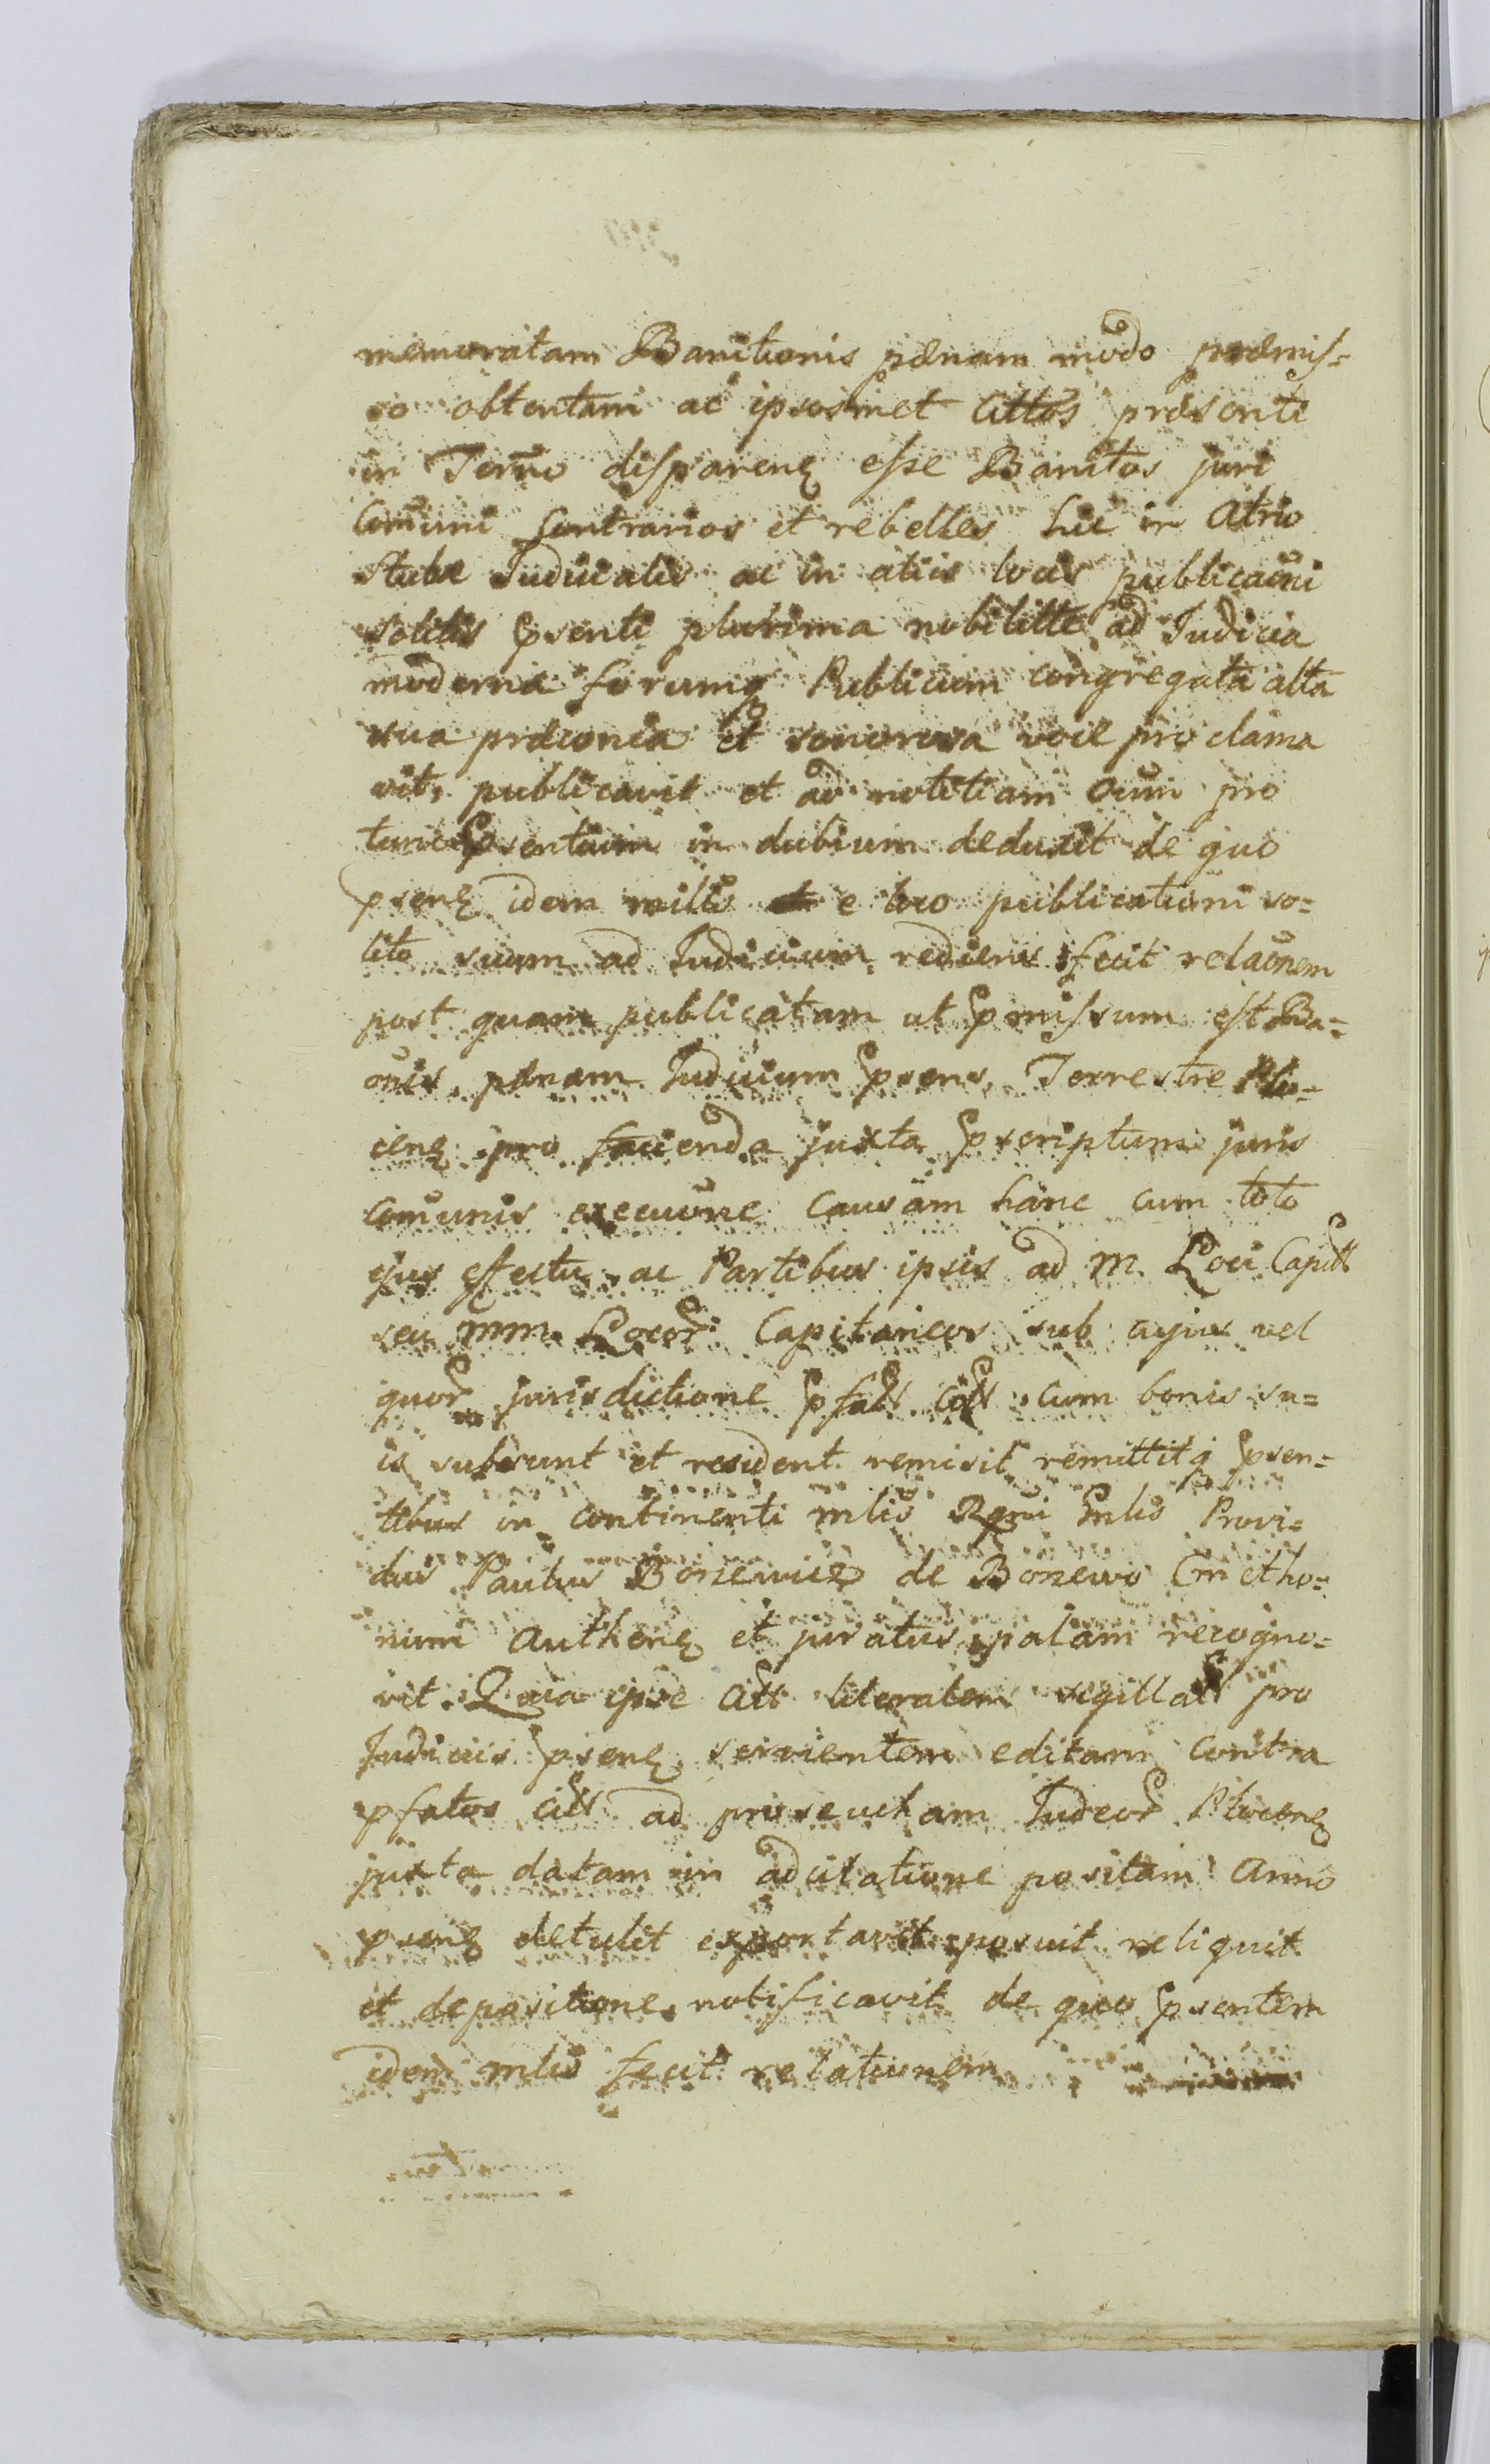 memoratam Banitionis pænam modo præmis=
so obtentam ac ipsosmet Cittos præsenti
in Termo disparenꝫ esse Banitos juri
Comuni Contrarios et rebelles hic in Atrio
Stubæ Judicialis ac in aliis locis publicaõni
solitis Psenti plurima nobilitte ad Judicia
moderna forumq Publicum congregata alta
sua præconia et sonorosa voce proclama
vit, publicavit et ad notitiam oum pro
tunc Psentium in dubium deduxit de quo
psenꝫ idem millis e loco publicationi so=
lito suum ad Judicium rediens fecit relaõnem
post quam publicatam ut Pmissum est Ba=
onis pænam Judicium Psens Terrestre Plo=
cenꝫ pro facienda juxta Pscriptum juris
comunis execuõne Causam hanc cum toto
ejus effectu ac Partibus ipsis ad M. Loci Captt
seu MM. Locor Capitaneos sub cujus vel
quor jurisdictione Pfatt Citt cum bonis su=
is subsunt et resident remisit remittitq Psen=
tibus in continenti mlis Rgni Gnlis Provi=
dus Paulus Bonewicz de Bonewo Cmetho=
num authenꝫ et juratus palam recogno=
vit. Quia ipse Citt literalem sigillatt pro
Judiciis Psenꝫ servientem editam Contra
pfatos Citt ad prosecutam Judeor Plocenꝫ
juxta datam in ad citatione positam Anno
psenꝫ detulit exportavit posuit reliquit
et depositione notificavit de quo Psentem
idem mlis fecit relationem